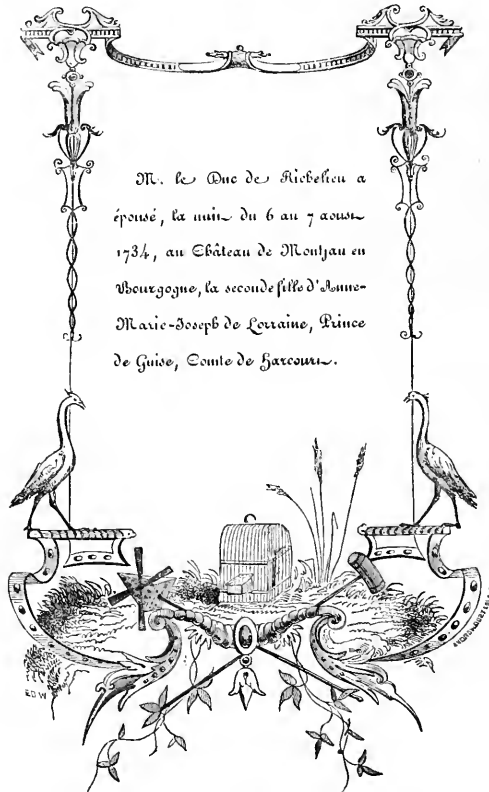 M. le Duc de Richelieu a
épousé, la nuit du 6 au 7 aoust
1734, au Château de Montjau en
Bourgogne, la seconde fille d'Anne-
Marie-Joseph de Lorraine, Prince
de Guise, Comte de Harcourt.
ED W